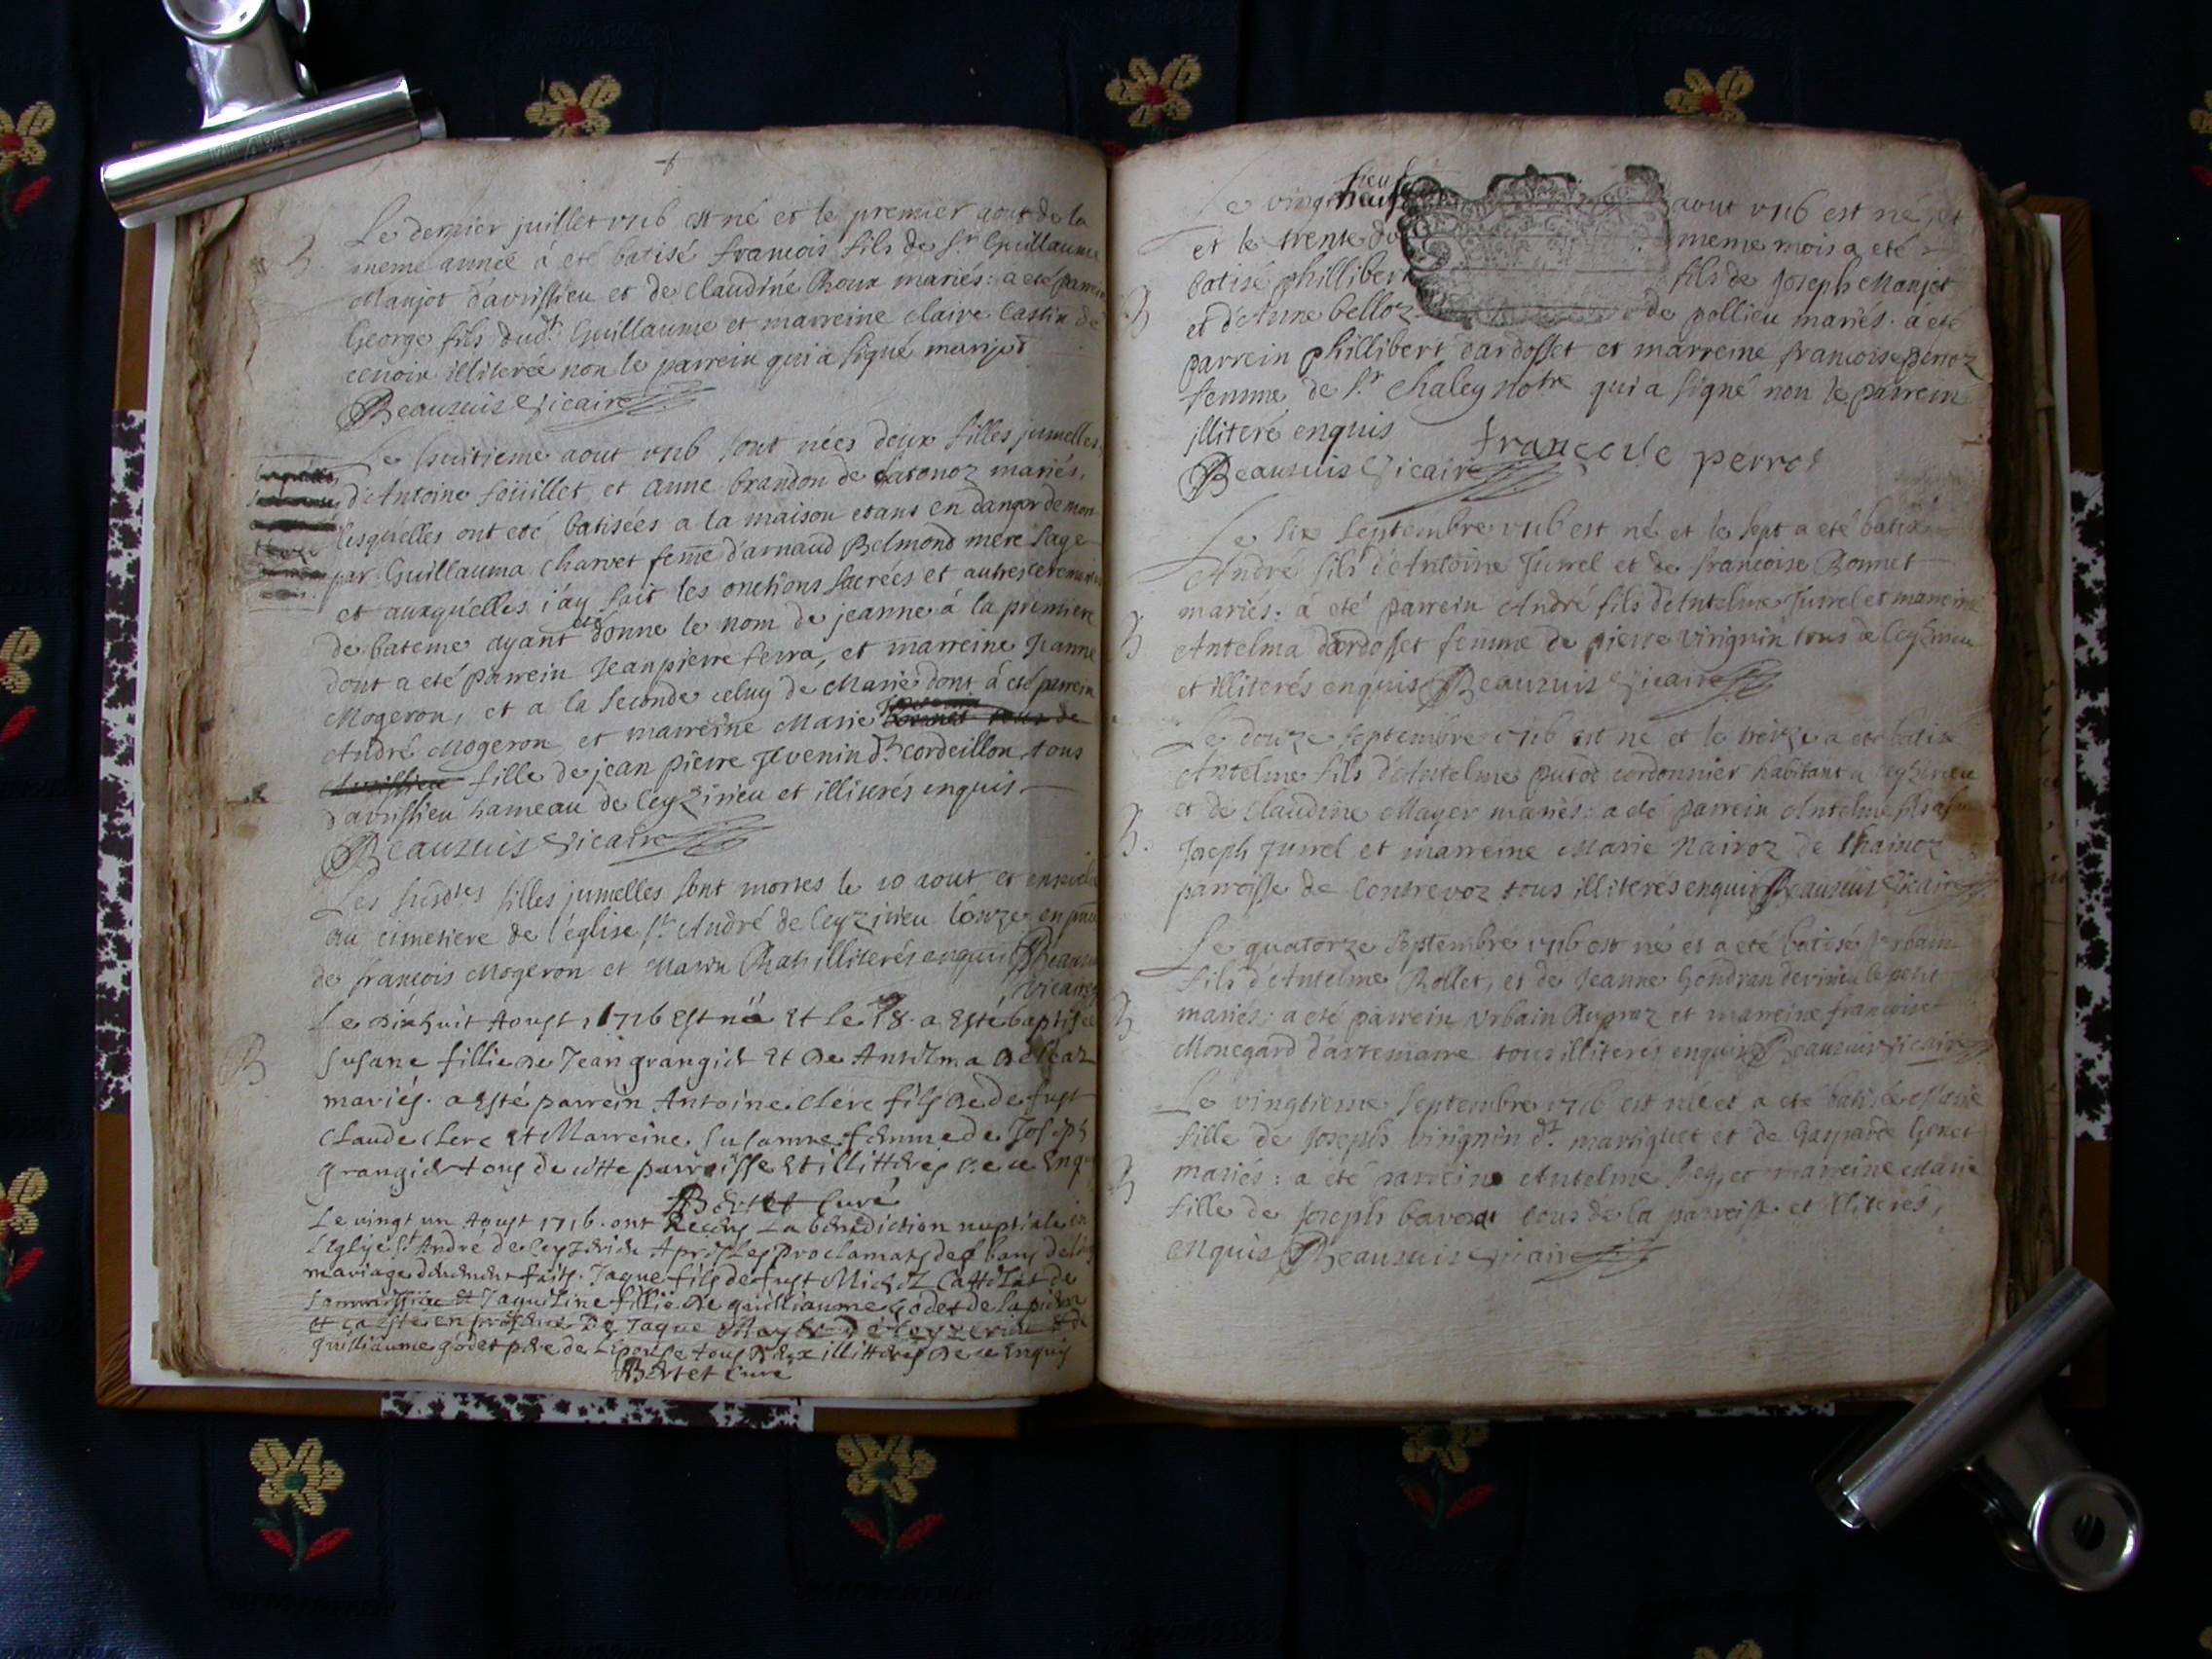 Le dernier juillet 1716 est né et le premier aout de la
B. meme année à eté batisé francois fils de Sr. Guillaume
Manjot d'avrissieu et de Claudine Roux mariés: a eté parrein
George fils dudt. Guillaume et marreine Claire Castin de
illiterée non le parrein qui a signé manjot
Beauzuis Vicaire
Le huitieme aout 1716 sont nées deux filles jumelles,
d'Antoine et anne brandon de mariés,
lesquelles ont eté batisées a la maison etans en danger de mort
par Guillauma Charvet feme d'arnaud Belmond mere sage
et auxquelles j'ay fait les onctions sacrées et autres ceremonies
de bateme ayant eté donne le nom de jeanne à la premiere
dont a eté parrein Jeanpierre ferra, et marreine Jeanne
Mogeron, et a la seconde celuy de Marie dont à eté parrein
André Mogeron et marreine Marie
fille de jean pierre Jevenin dt. cordeillon tous
d'avrissieu hameau de Ceyzirieu et illiterés enquis
Beauzuis Vicaire
Les susdtes filles jumelles sont mortes le 10 aout et ensevelies
au cimetiere de l'église St. André de Ceyzirieu l'onze en
de françois Mogeron et illiterés enquis Beauzuis
Vicaire
Le dixhuit Aoust 1716 est né et Le 18. a esté baptisée
B Susane fillie de Jean grangier et de Antelma
mariés. a esté parrein Antoine Clerc fils de defust
Claude Clerc et Marreine Susanne femme de Joseph
grangier tous de cette parroisse et illitterés de ce enquis
Bertet Curé
Le vingt un Aoust 1716. ont Receus La benediction nuptiale en
L'Eglise St André de Ceyzerieu Après Les proclamats des bans de
mariage deuement faits. Jaque fils de fust Michel de
et Jaqueline fillie de guilliaume godet de
et ça esté en presence De Jaque Mayer De Ceyzerieu et de
guilliaume godet pere de L'epouse tous deux illitterés de ce enquis
Bertet Curé
Le vingt neuf aout 1716 est né, et
et le trente du meme mois a eté
batisé phillibert fils de Joseph Manjot
B et d'Anne belloz de pollieu mariés. a eté
parrein phillibert dardosset et marreine francoise perroz
femme de Sr. Chaley notre qui a signé non le parrein
illiteré enquis francoise perros
Beauzuis Vicaire
Le six septembre 1716 est né et le sept a eté batisé
André fils d'Antoine Jurrel et de francoise Bonnet
mariés: à eté parrein André fils d'Antelme Jurrel et marreine
B Antelma dardosset femme de pierre virignin tous de Ceyzirieu
et illiterés enquis Beauzuis Vicaire
Le douze septembre 1716 est né et le treize a eté batisé
Antelme fils d'Antelme putod cordonnier habitant a Ceyzirieu
et de Claudine Mayer mariés: a eté parrein Antelme
B. Joseph Jurrel et marreine Marie Nairoz de
parroisse de Contrevoz tous illiterés enquis Beauzuis Vicaire
Le quatorze septembre 1716 est né et a eté batisé Urbain
fils d'Antelme Rollet, et de Jeanne Gondran de virieu le petit
B mariés: a eté parrein Urbain et marreine francoise
Monegard d'artemarre tous illiterés enquis Beauzuis Vicaire
Le vingtieme septembre 1716 est née et a eté batisée Marie
fille de Joseph virignin dt. martiguet et de Gasparde Genet
B mariés: a eté parrein Antelme et marreine Marie
fille de Joseph tous de la parroisse et illiterés,
enquis Beauzuis Vicaire